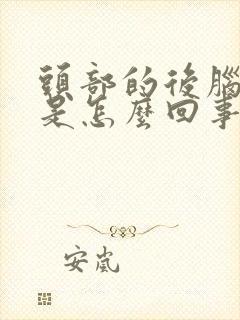 頭部的後腦
是怎麼回事
安嵐